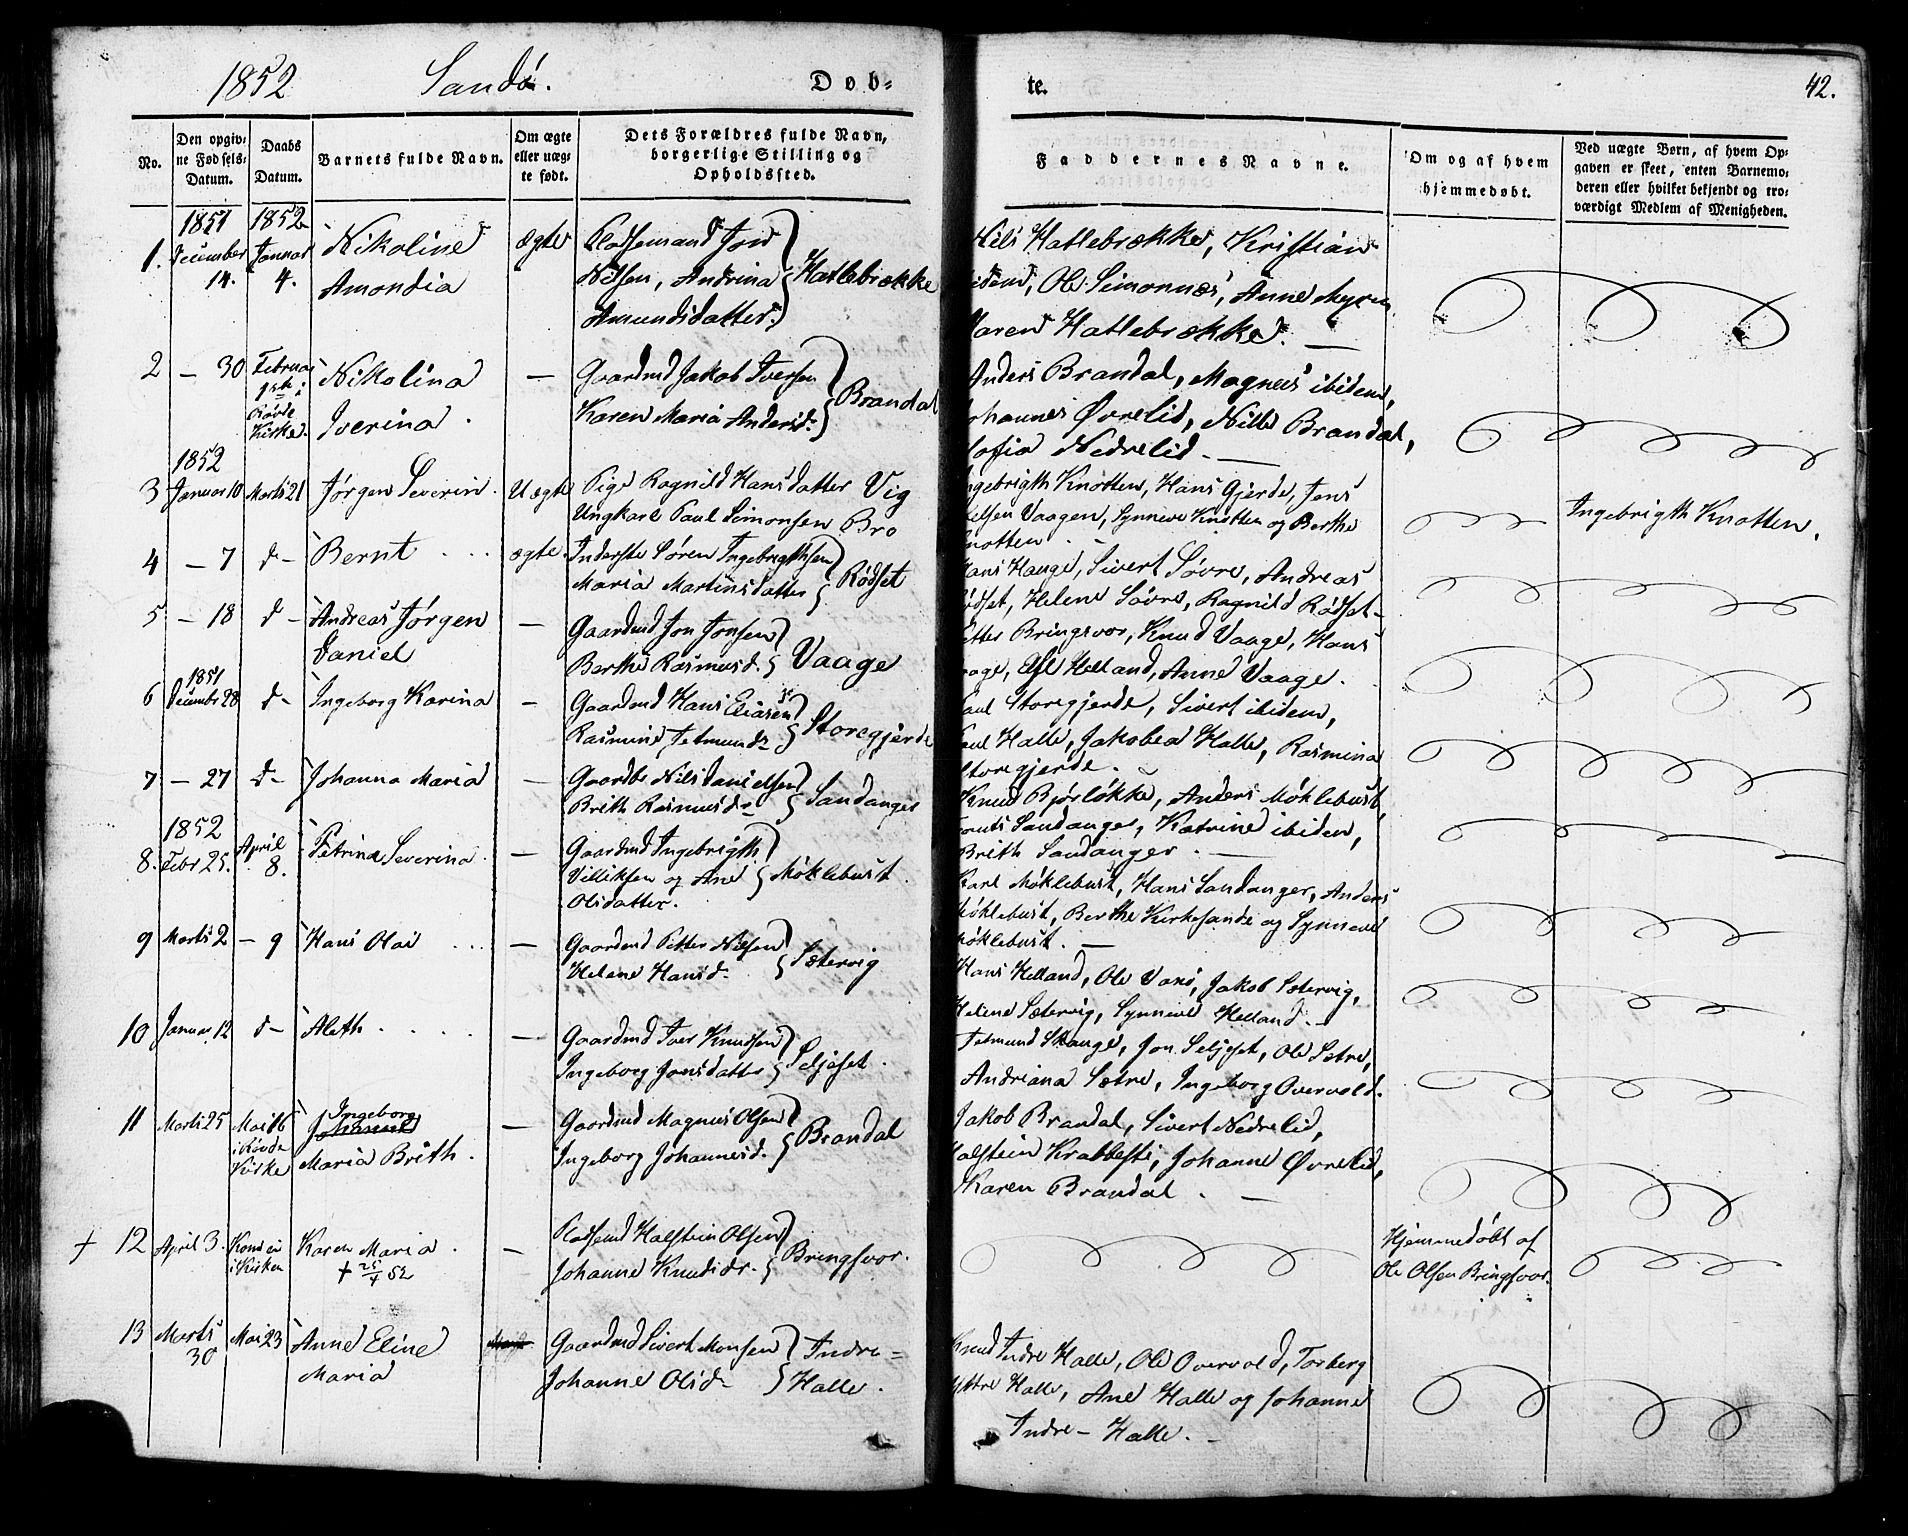 1852 Sandø. Døb-
No.
Den opgiv-
ne Fødsels-
Datum.
Daabs
Datum.
Barnets fulde Navn.
Om ægte
eller uæg-
te født.
Dets Forældres fulde Navn,
borgerlige Stilling og
Opholdssted.
1. 1851 December 14. 1852 Januar 4. Nikoline Amondia ægte
Pladsemand Jon
Nilsen, Andrina
Amundsdatter.
Hatlebrække
2 — 30 Februar i Rövde Kirke. Nikolina Iverina. —
Gaardmd Jakob Iversen
Karen Maria Andersd.
Brandal
1852
3 Januar 10 Marts 21 Jørgen Severin. Uægte
Pige Ragnild Hansdatter Vig
Ungkarl Paul Simonsen Bro
4 — 7 d— Bernt ægte.
Inderste Søren Ingebrigthsen
Maria Martinsdatter
Rødset
5 — 18 d— Andreas Jørgen Daniel —
Gaardmd Jon Jonsen
Berthe Rasmusd.
Vaage
1851
6 Decembr 28 d— Ingeborg Karina —
Gaardmd Hans Eliasen
Rasmine Tetmundsd
Storegjerde
7 — 27 d— Johanna Maria —
Gaardbr Nils Danielsen
Brith Rasmusdr
Sandanger
1852
8. Febr 25. April 8. Petrina Severina. —
Gaardmd Ingebrigth
Villiksen og Ane
Olsdatter.
Møklebust.
9 Marts 2 — 9 Hans Olai —
Gaardmd Petter Nilsen
Helene Hansd.
Sætervig
10 Januar 12 d— Aleth. —
Gaardmd Iver Knudsen
Ingeborg Jonsdatter
Seljeset.
11 Marts 25 Mai 16 i Rövde Kirke Ingeborg Maria Brith. —
Gaardmd Magnus Olsen
Ingeborg Johannesd.
Brandal
+ 12 April 3. Kom ei i Kirken Karen Maria. —
+ 25/4 52
Pladsemd Halstein Olsen
Johanne Knudsdr.
Bringsvor.
13 Marts 30 Mai 23 Anne Eline Maria
Gaardmd Sivert Monsen
Johanne Olsd
Indre-
Halle.
te. 42.
Faddernes Navne.
Om og af hvem
hjemmedøbt.
Ved uægte Børn, af hvem Op-
gaven er skeet, enten Barnemo-
deren eller hvilket bekjendt og tro-
værdigt Medlem af Menigheden.
Nils Hatlebrække, Kristian
ibidem, Ole Simonnæs, Anne Myren,
Maren Hatlebrække. —
Anders Brandal, Magnus ibidem,
Johannes Øvrelid, Nille Brandal,
Sofia Nedrelid. —
Ingebrigth Knotten, Hans Gjerde, Jens
Nilsen Vaagen, Synneve Knotten og Berthe
Knotten. Ingebrigth Knotten.
Hans Hauge, Sivert Søvre, Andreas
Rødset, Helene Søvre, Ragnild Rødset—
Petter Bringsvor, Knud Vaage, Hans
Vaage, Else Helland, Anne Vaage.
Paul Storegjerde, Sivert ibidem,
Paul Halle, Jakobea Halle, Rasmina
Storegjerde.
Knud Bjørløkke, Anders Møklebust,
Sandanger, Katrine ibidem,
Brith Sandanger. —
Karl Møklebust, Hans Sandanger, Anders
Møklebust, Berthe Kirkesande og Synneve
Møklebust. —
Hans Helland, Ole Voksø, Jakob Sætervig,
Helene Sætervig, Synneve Helland. —
Tetmund Skauge, Jon Seljeset, Ole Sætre,
Andriana Sætre, Ingeborg Overvold.
Jakob Brandal, Sivert Nedrelid,
Halstein Krabbesti, Johanne Øvrelid,
Karen Brandal. —
Hjemmedøbt af
Ole Olsen Bringsvor.
Knud Indre Halle, Ole Overvold, Torberg
Yttre Halle, Ane Halle og Johanne
Indre-Halle. —